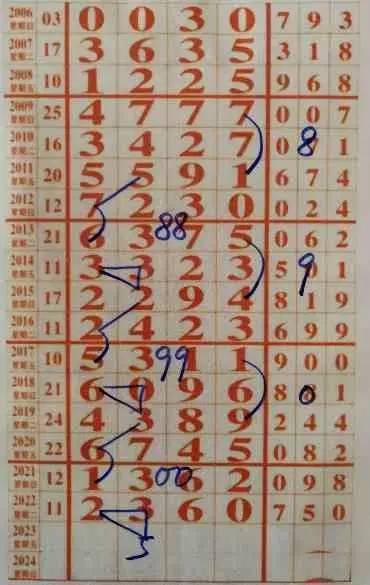 2006 星期日 03 0 0 3 0 7 9 3
2007 星期二 17 3 6 3 5 3 1 8
2008 星期五 10 1 2 2 5 9 6 8
2009 星期日 25 4 7 7 7 0 0 7
2010 星期二 16 3 4 2 7 0 8 1
2011 星期五 20 5 5 9 1 6 7 4
2012 星期日 12 7 2 3 0 0 2 4
2013 星期二 21 6 3 88 7 5 0 6 2
2014 星期五 11 3 3 2 3 5 9 1
2015 星期日 17 2 2 9 4 8 1 9
2016 星期二 11 2 4 2 3 6 9 9
2017 星期五 10 5 3 99 1 1 9 0 0
2018 星期日 21 6 0 9 6 8 0 1
2019 星期二 24 4 3 8 9 2 4 4
2020 星期五 22 6 7 4 5 0 8 2
2021 星期日 12 1 3 00 6 2 0 9 8
2022 星期二 11 2 3 6 0 7 5 0
2023 星期五 5
2024